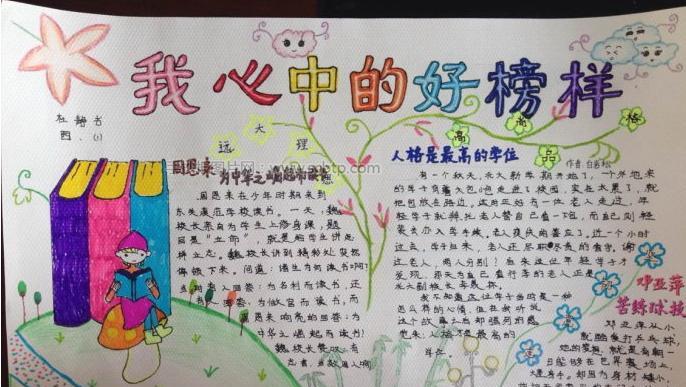 我心中的好榜样
四、(1)
远大理
周恩来
为中华之崛起而读书
周恩来在少年时期来到
东关模范学校读书。一天，魏
校长亲自为学生上修身课，题
目是“立命”，就是给学生讲怎
样立志。魏校长讲到精彩处突然
停顿下来。问道：“诸生为何读书啊？”
人回答：为名利而读书，还
回答：为做官而读书，而
周恩来响亮的回答：为
中华之崛起而读书！
魏校长赞叹：有
高高品格
人格是最高的学位
作者：白岩松
有一个秋天，北大新学期开始了，一个外地来
的学子背着大包小包走进了校园，实在太累了，就
把包放在路边。这时正好有一位老人走过，年
轻学子就拜托老人替自己看一下包，而自己则轻
装去办入学手续。老人爽快的答应了。近一个小时
过去，学子归来，老人还尽职尽责的看守。谢
过老人，两人分别！
发现，
北大副校长季羡林。
我不知道这位学子当时是一种
怎么样的心情，但在我听说
这个故事之后却强烈的感
人格才是最高的
学位。
邓亚萍
苦练球技
邓亚萍从小
就酷爱打乒乓球，
她的梦想，就是有朝一
日能够在世界赛场上
大显身手。却因为身材矮小，